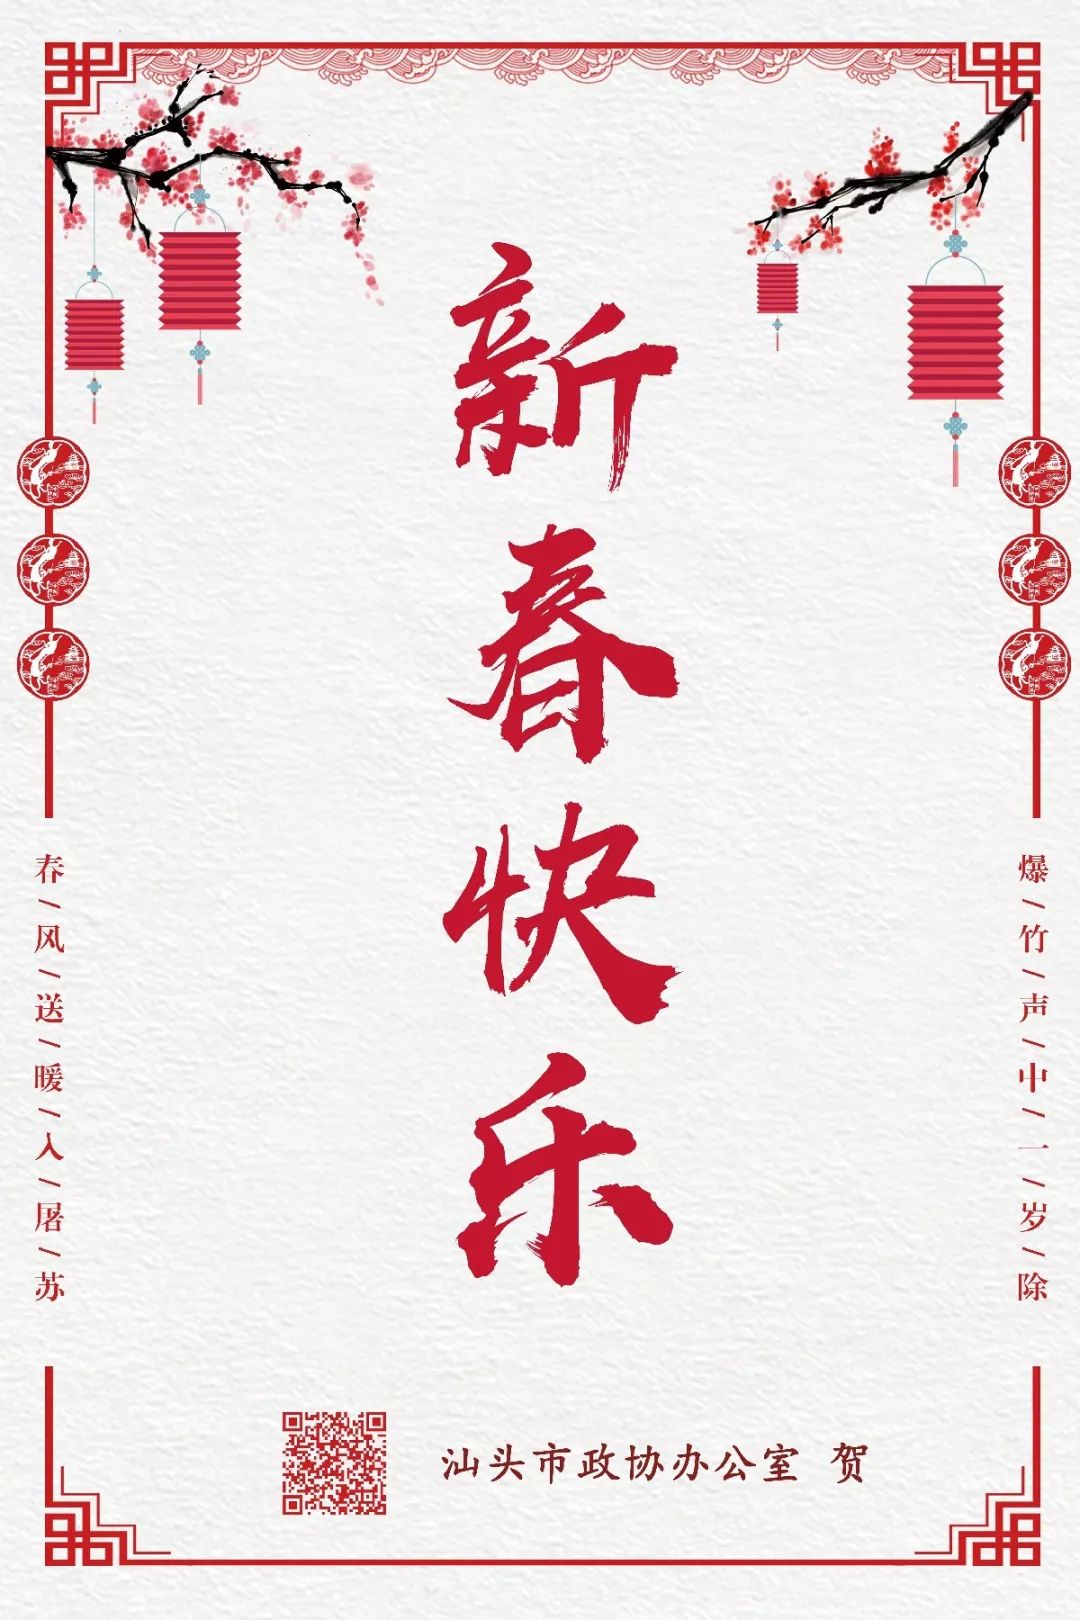 新春快乐
爆/竹/声/中/一/岁/除
春/风/送/暖/入/屠/苏
汕头市政协办公室 贺